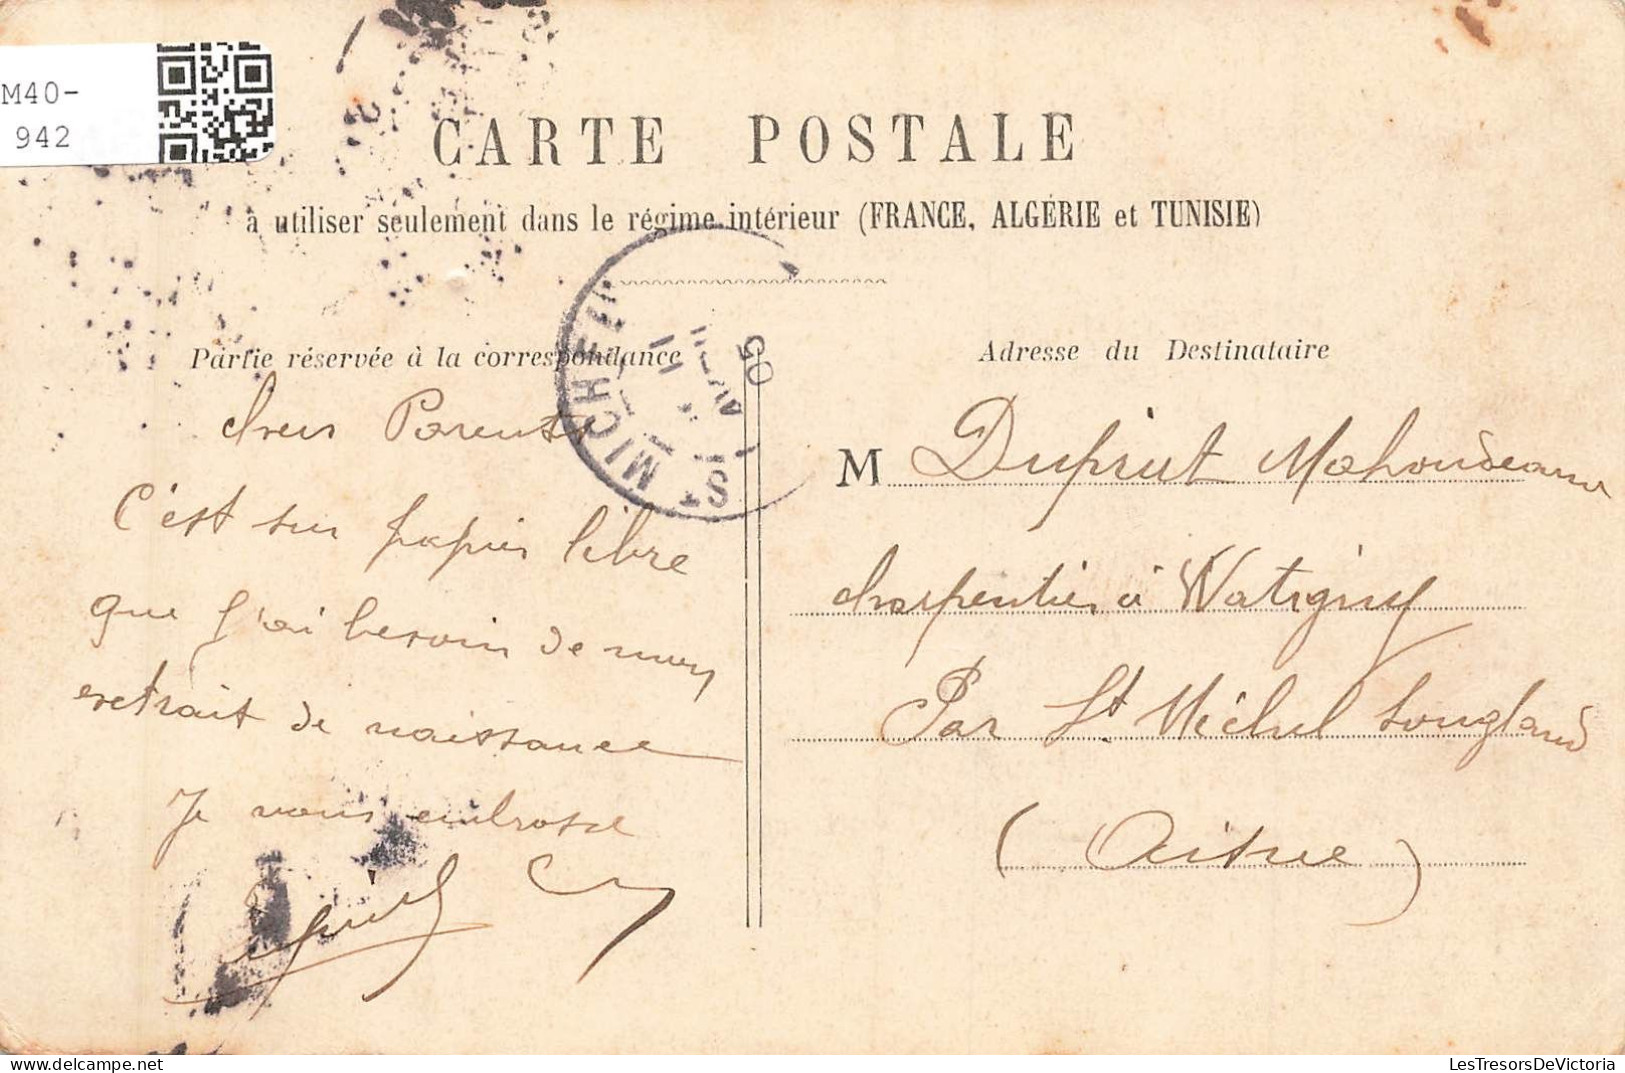 M40-
942
CARTE POSTALE
à utiliser seulement dans le régime intérieur (FRANCE, ALGÉRIE et TUNISIE)
Partie réservée à la correspondance
Chers Parents
C'est sur papier libre
que j'ai besoin de mon
extrait de naissance
Je vous embrasse
ST MICHEL
11
05
Adresse du Destinataire
M Duprut Mahoudeaux
charpentier à Watigny
Par St Michel Sougland
(Aisne)
LesTresorsDeVictoria